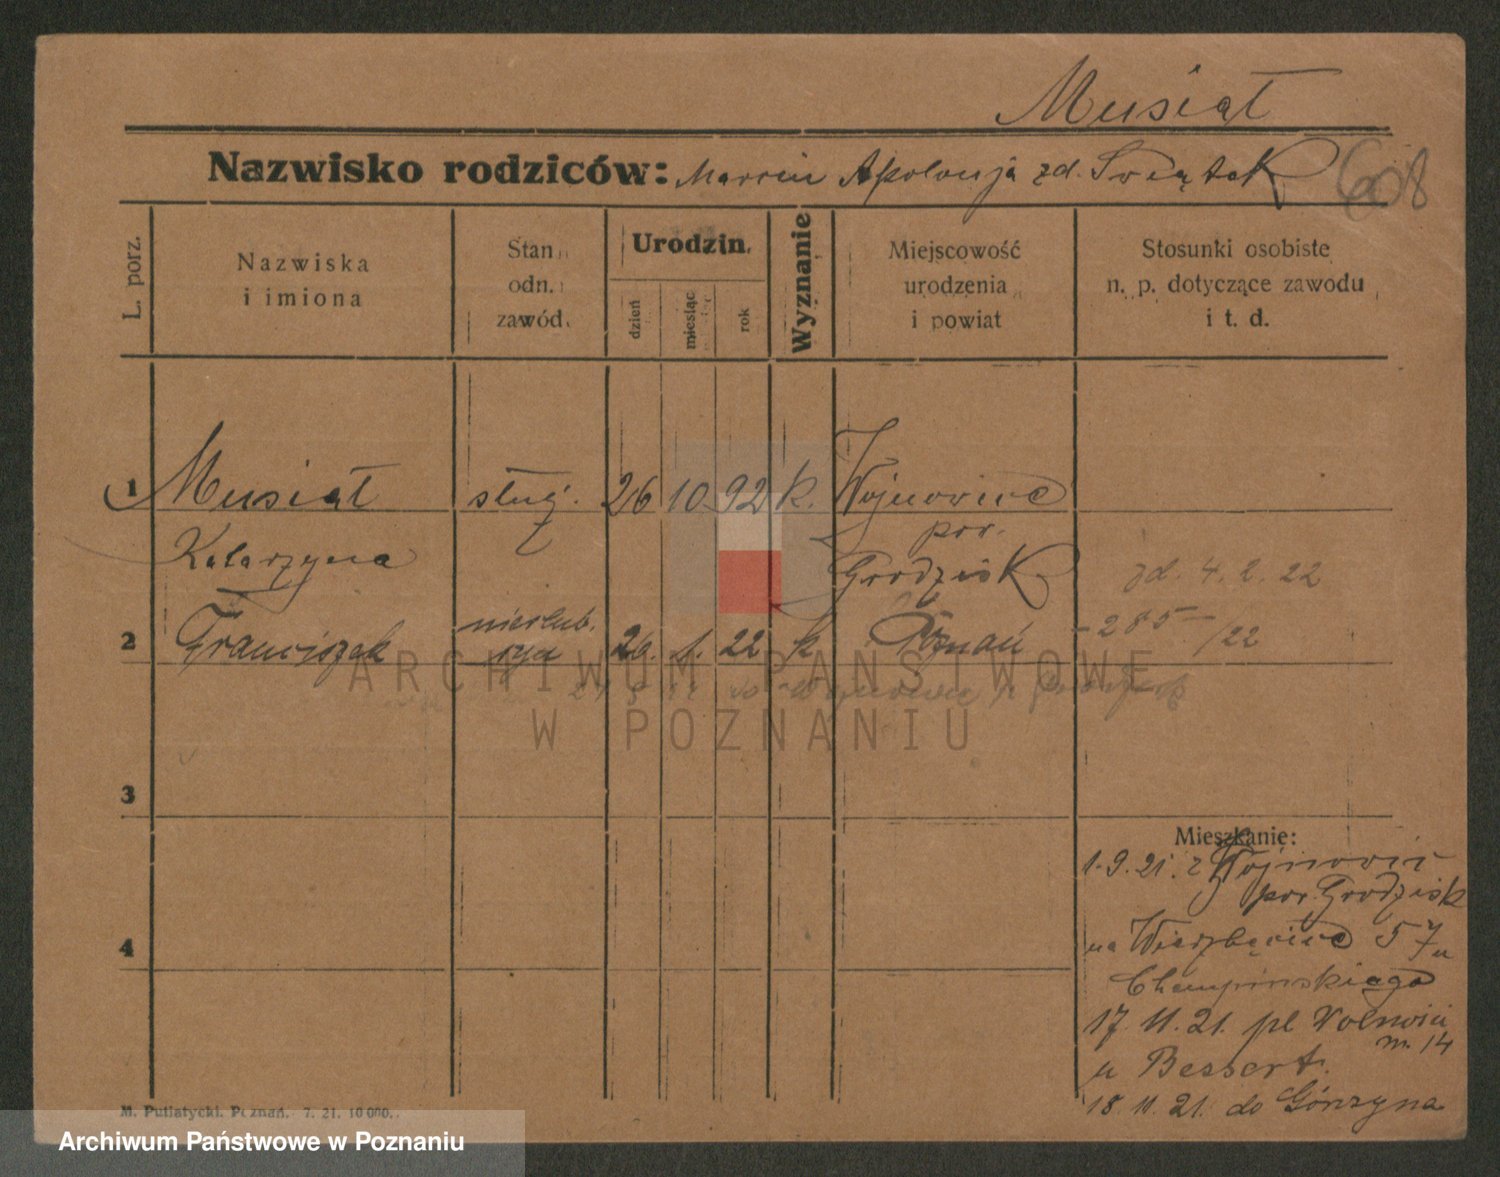 Musiał
Nazwisko rodziców: Marcin Apolonja zd. Świątek
608
L. porz.
Nazwiska
i imiona
Stan
odn.
zawód.
Urodzin.
dzień
miesiąc
rok
Wyznanie
Miejscowość
urodzenia
i powiat
Stosunki osobiste
n. p. dotyczące zawodu
i t. d.
1 Musiał służ. 26 10 92 k. Wojnowice
Katarzyna pow.
Grodzisk
zd. 4.2.22
2 Franciszek nieślub. 26. 1. 22 k Poznań - 285 - /22
syn
3
4
Mieszkanie:
1.9.21. z Wojnowic
pow Grodzisk
na Wierzbięcice 57 u
17.11.21. pl Wolności
nr. 14
u Bessert.
18.11.21. do Górzyna
M. Putiatycki. Poznań. 7. 21. 10 000.
ARCHIWUM PAŃSTWOWE
W POZNANIU
Archiwum Państwowe w Poznaniu